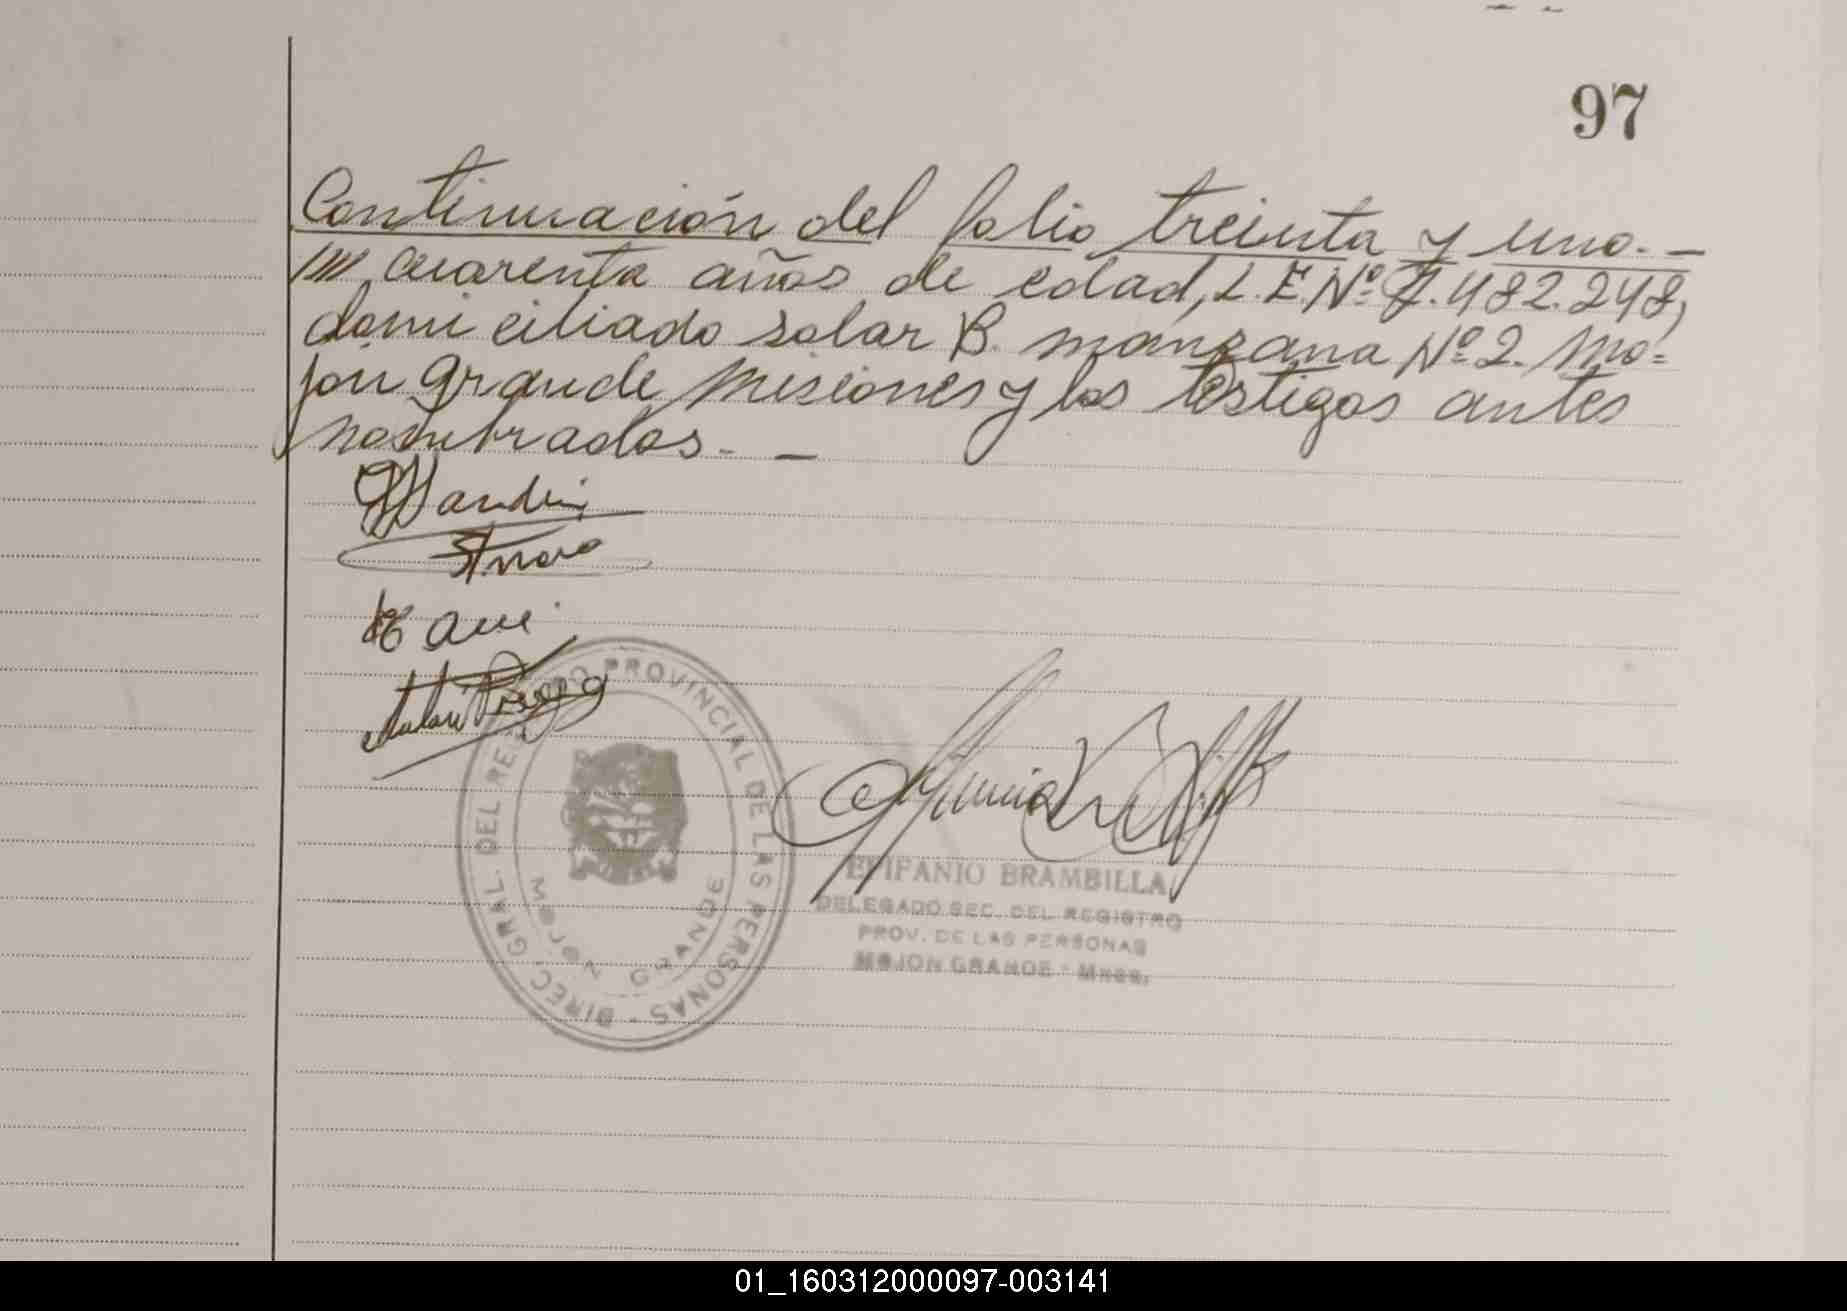 97
Continuación del folio treinta y uno. —
cuarenta años de edad, L.E. Nº 7.482.248,
domiciliado solar B. manzana Nº 2. Mo=
jón Grande Misiones y los testigos antes
nombrados. —
DIREC. GRAL. DEL REGISTRO PROVINCIAL DE LAS PERSONAS -
MOJON GRANDE
EPIFANIO BRAMBILLA
DELEGADO SEC. DEL REGISTRO
PROV. DE LAS PERSONAS
MOJON GRANDE - Mnes.
01_160312000097-003141